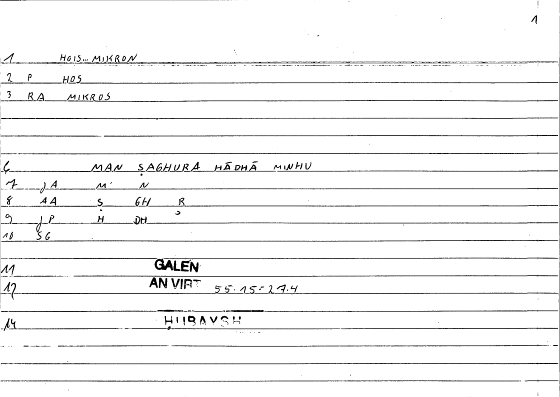 1
1 HOIS... MIKRON
2 P HOS
3 RA MIKROS
6 MAN ṢAGHURA HĀDHĀ MINHU
7 JA M' N
8 AA Ṣ GH R
9 JP H DH
10 SG
11 GALEN
12 AN VIRT 55.15=27.4
14 ḤUBAYSH